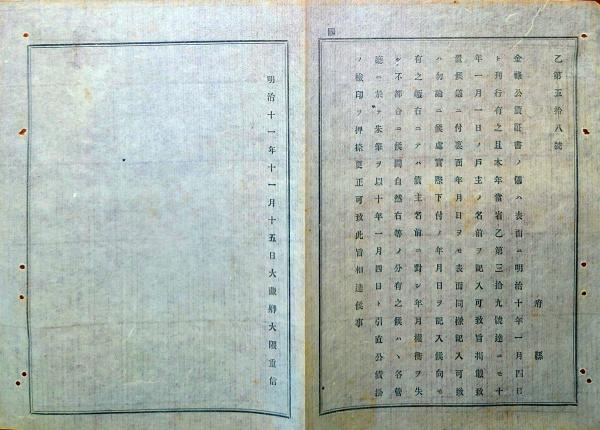 乙第五拾八號
府縣
金祿公債証書ノ儀ハ表面ニ明治十年一月四日
ト刊行有之且本年當省乙第三拾九號達ニモ十
年一月一日ノ戸主ノ名前ヲ記入可致旨掲載致
置候儀ニ付裏面年月日ヲモ表面同樣記入可致
ハ勿論ニ候處實際下付ノ年月日ヲ記入候向モ
有之趣右ニアハ債主名前ニ對シ年月權衡ヲ失
シ不都合ニ候間自然右等ノ分有之候ハヽ各管
廳ニ於テ朱筆ヲ以十年一月四日ト引直公債掛
ノ檢印ヲ押捺更正可致此旨相達候事
明治十一年十一月十五日大藏卿大隈重信